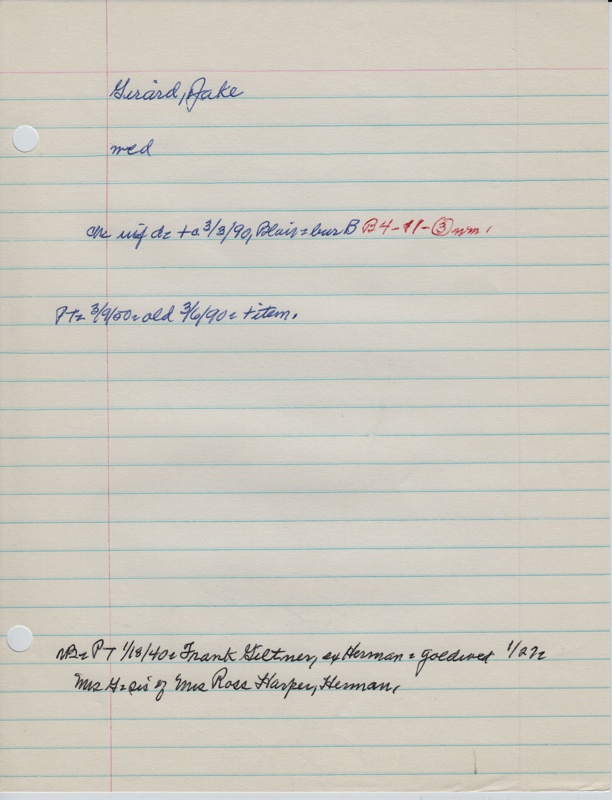 Girard, Jake
med
inf d= +a 3/3/90, Blair = bur B B4-11-③ nm.
PT= 3/9/50= old 3/6/90= + item.
NB= PT 1/18/40= Frank Giltner, ex Herman = goldwed 1/27=
Mrs G= sis of Mrs Ross Harper, Herman.